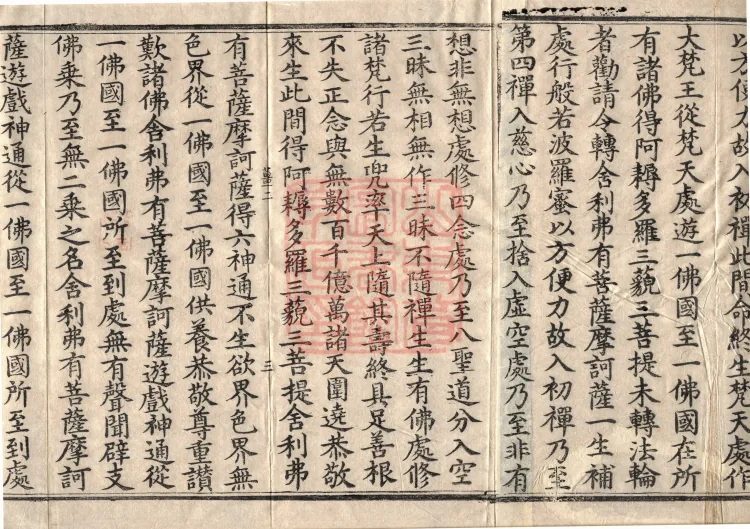 以方便力故入初禅此間命終生梵天處作
大梵王從梵天處遊一佛國至一佛國在所
有諸佛得阿耨多羅三藐三菩提未轉法輪
者勸請令轉舍利弗有菩薩摩訶薩一生補
處行般若波羅蜜以方便力故入初禪乃至
第四禪入慈心乃至捨入虛空處乃至非有
想非無想處修四念處乃至八聖道分入空
三昧無相無作三昧不隨禪生生有佛處修
諸梵行若生兜率天上隨其壽終具足善根
不失正念與無數百千億萬諸天圍遶恭敬
來生此間得阿耨多羅三藐三菩提舍利弗
有菩薩摩訶薩得六神通不生欲界色界無
色界從一佛國至一佛國供養恭敬尊重讚
歎諸佛舍利弗有菩薩摩訶薩遊戲神通從
一佛國至一佛國所至到處無有聲聞辟支
佛乘乃至無二乘之名舍利弗有菩薩摩訶
薩遊戲神通從一佛國至一佛國所至到處
三